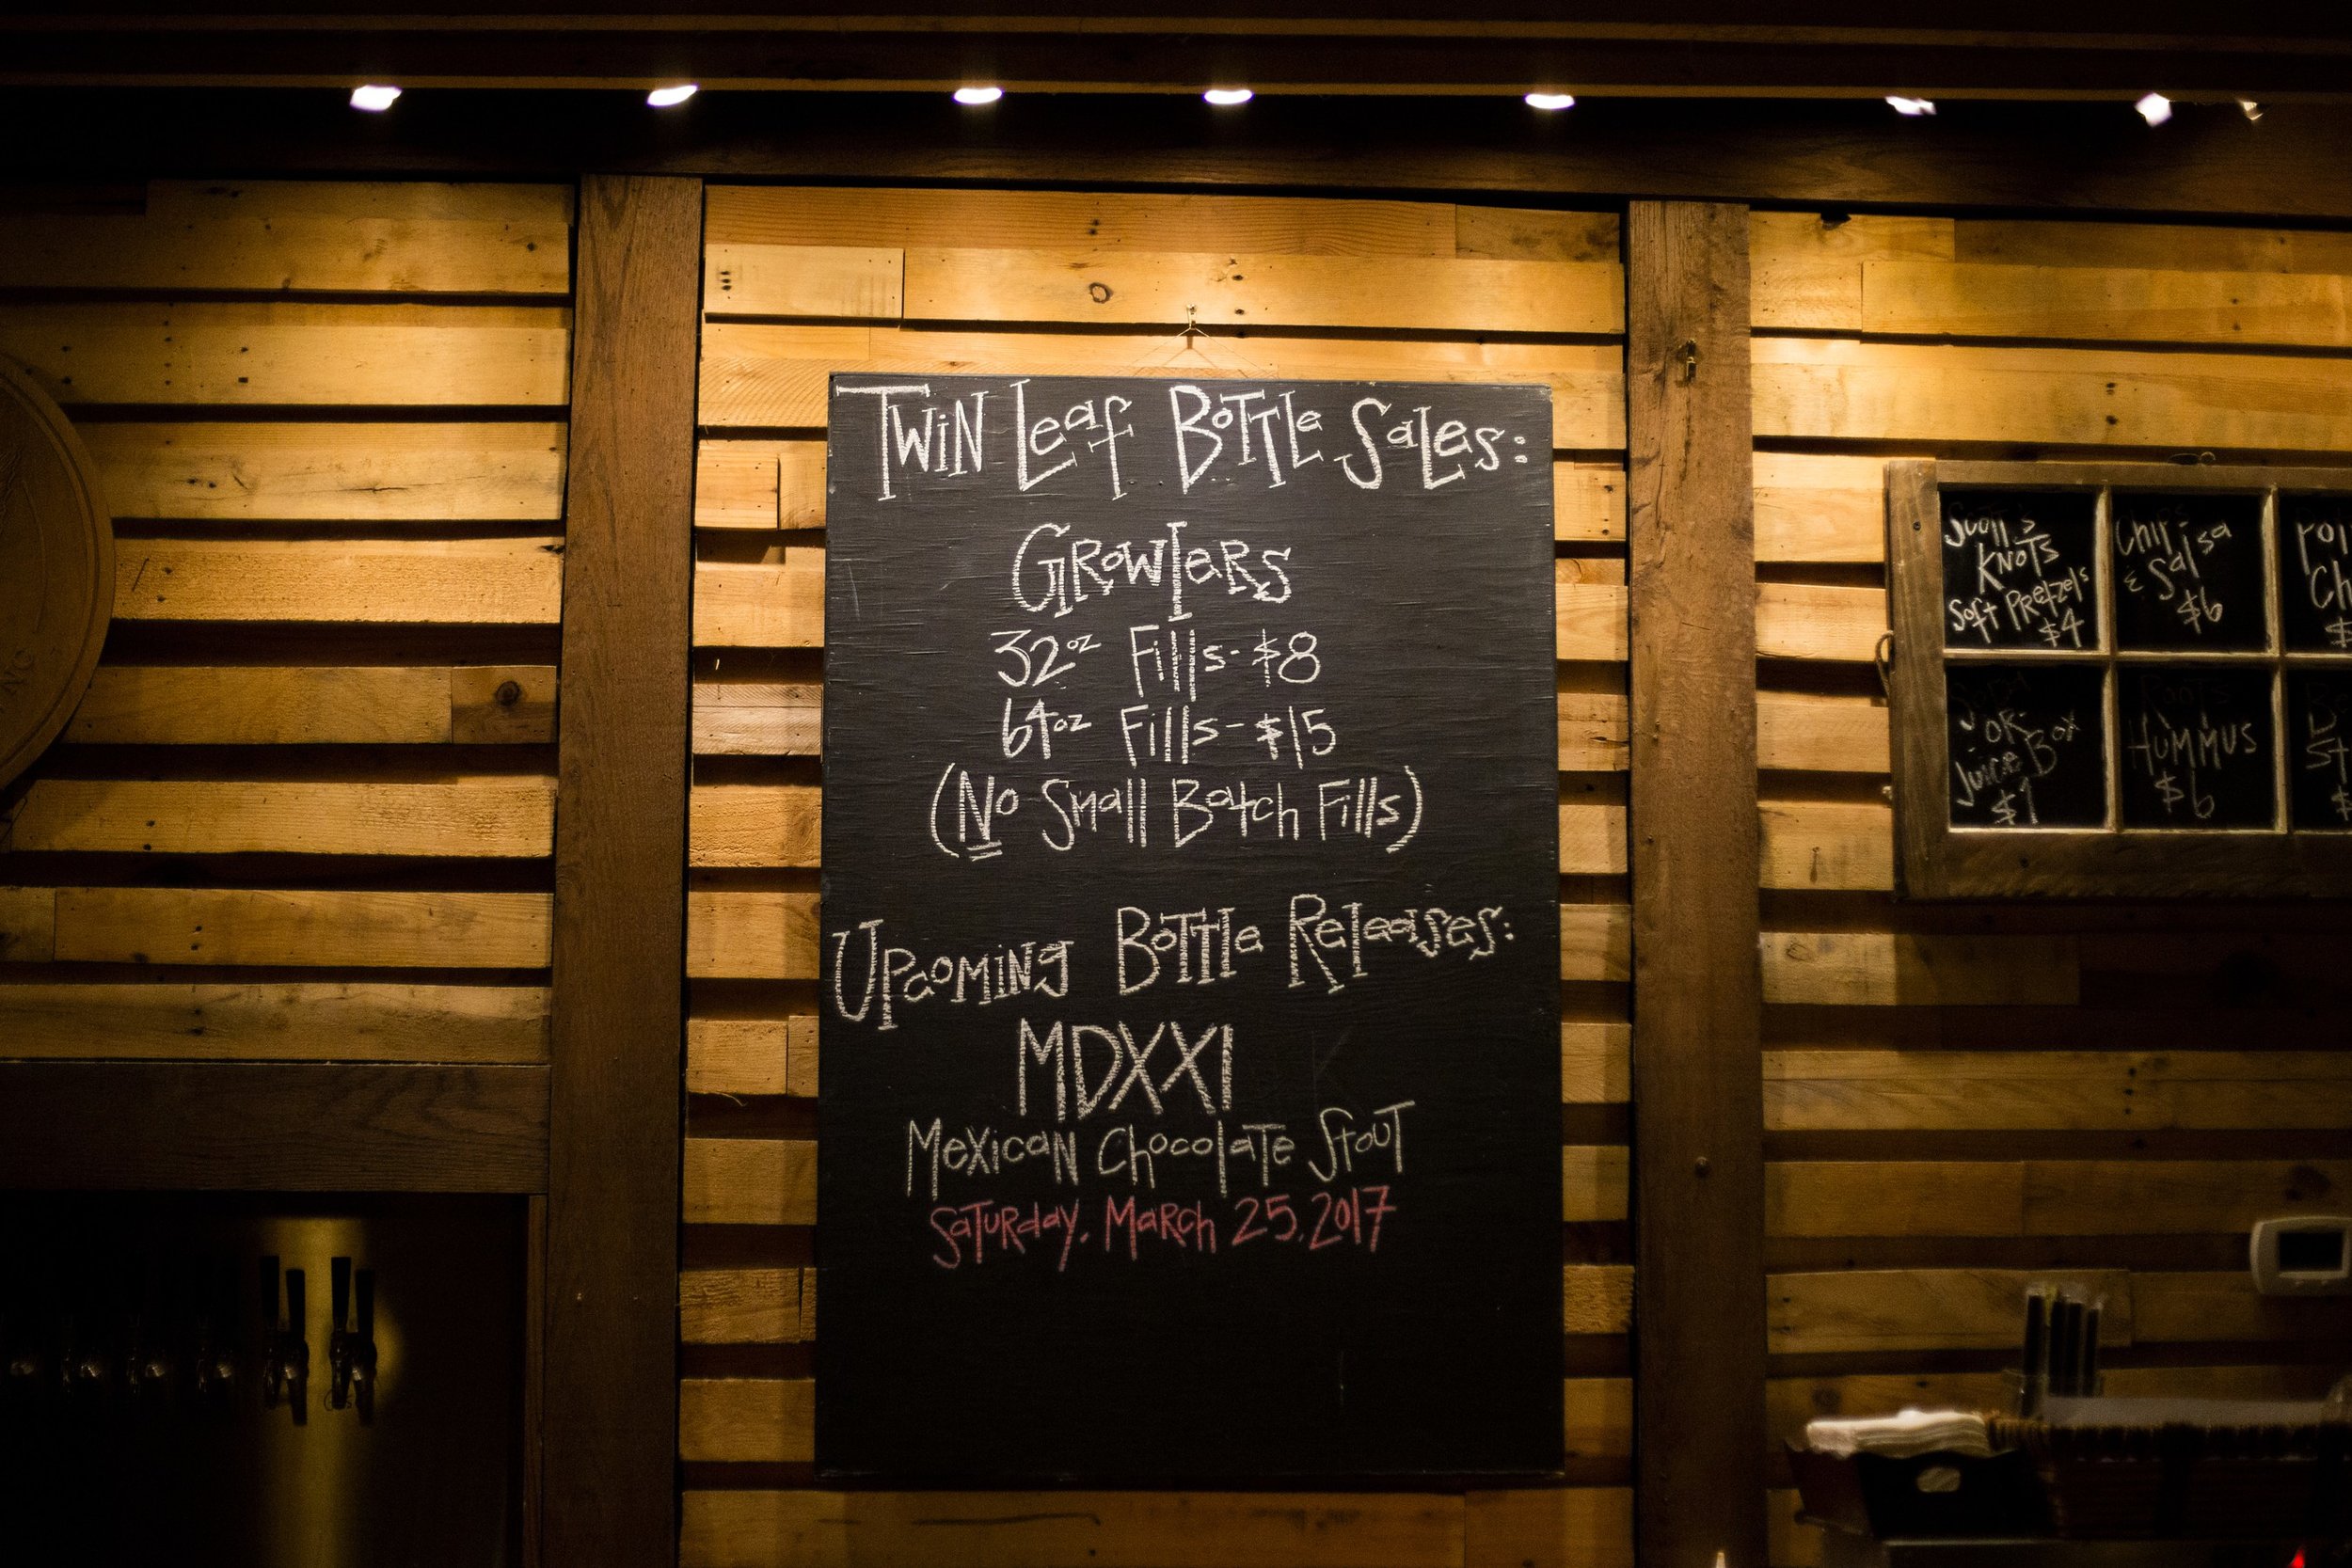 Twin Leaf Bottle Sales:
Growlers
32oz Fills-$8
64oz Fills-$15
(No Small Batch Fills)
Upcoming Bottle Releases:
MDXXI
Mexican Chocolate Stout
Saturday, March 25, 2017
Knots
Soft Pretzels
$4
Chip
& Salsa
$6
Soda
or
Juice Box
$1
Roots
Hummus
$6
NC